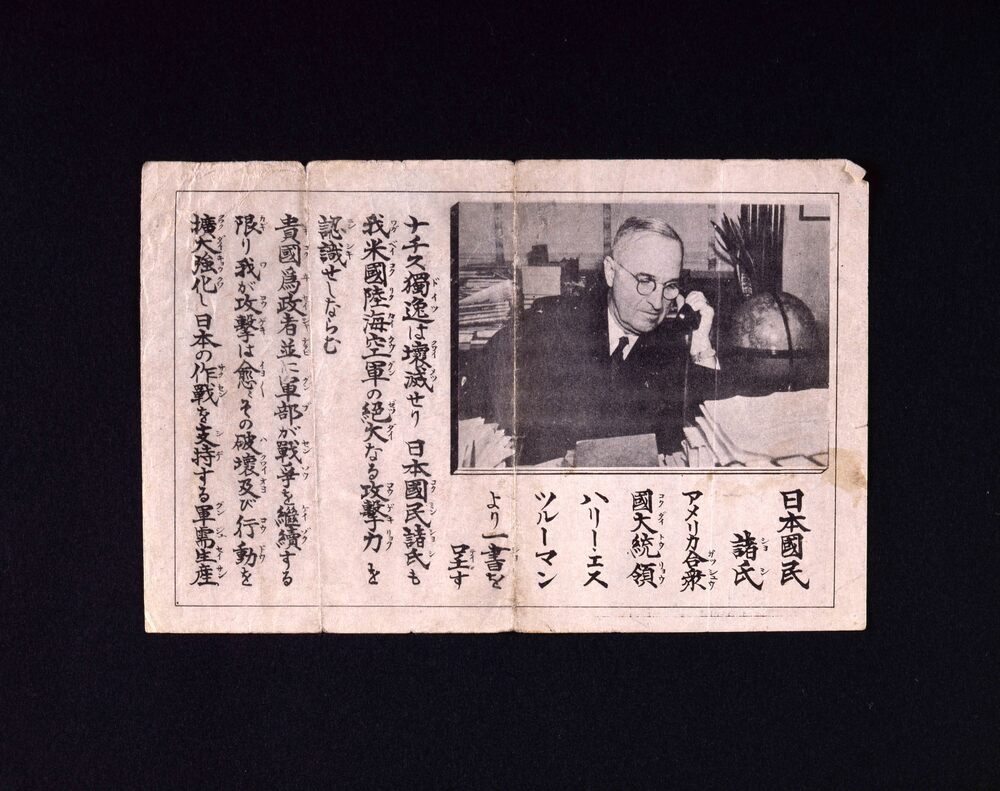 日本國民
諸氏
アメリカ合衆
國大統領
ハリー・エス
ツルーマン
より一書を
呈す
ナチス獨逸は壞滅せり 日本國民諸氏も
我米國陸海空軍の絕大なる攻擊力を
認識せしならむ
貴國爲政者並に軍部が戰爭を繼續する
限り我が攻擊は愈〻その破壞及び行動を
擴大強化し日本の作戰を支持する軍需生産